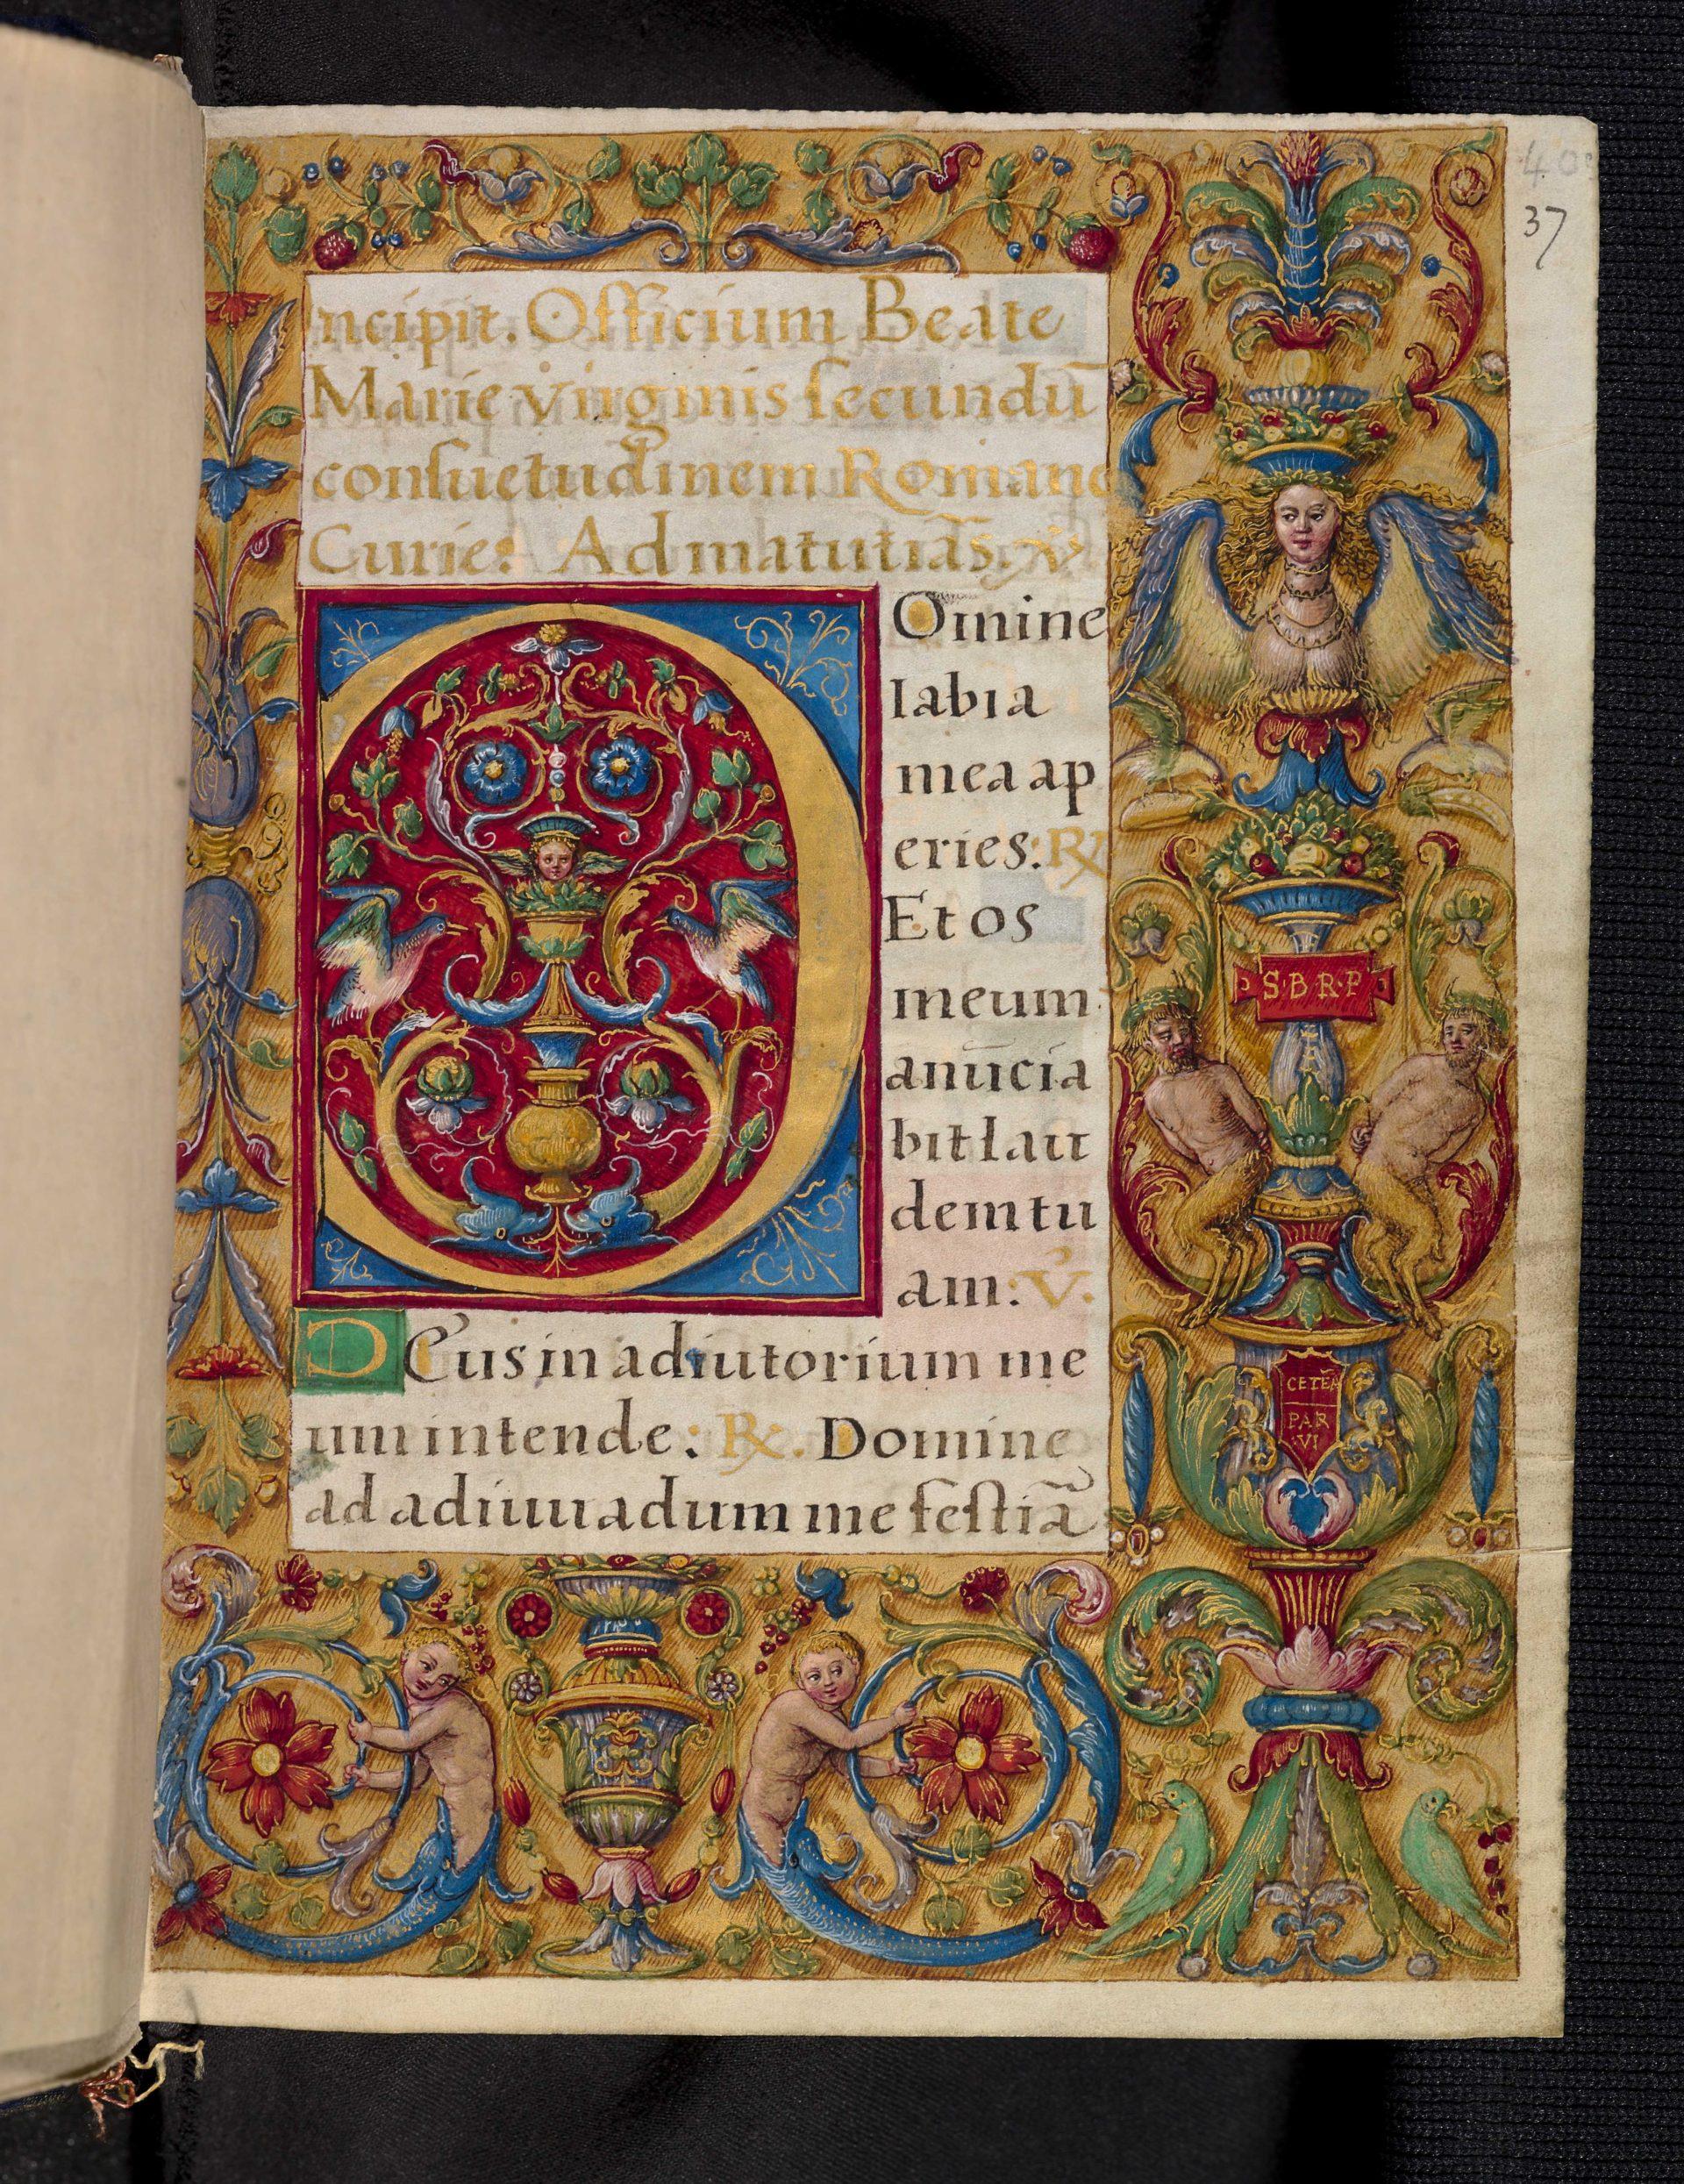 40
37
Incipit. Officium Beate
Marie virginis ſecundū
conſuetudinem Romane
Curie: Ad matutīas. v̇
DOmine
labia
mea ap
eries: ℟
Et os
meum
anūcia
bit lau
dem tu
am: V̇.
DEus in adiutorium me
um intende: ℟. Domine
ad adiuuadum me feſtiā
S·B·R·P
CETEA
PAR
VI